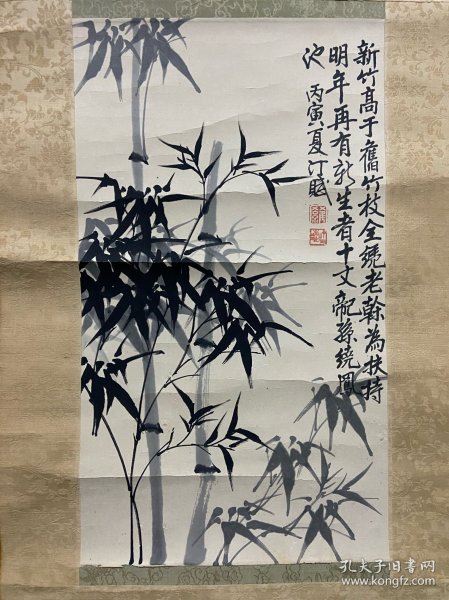 新竹高于舊竹枝全憑老榦為扶持
明年再有新生者十丈龍孫繞鳳
池 丙寅夏汀賦
孔夫子旧书网
www.kongfz.com